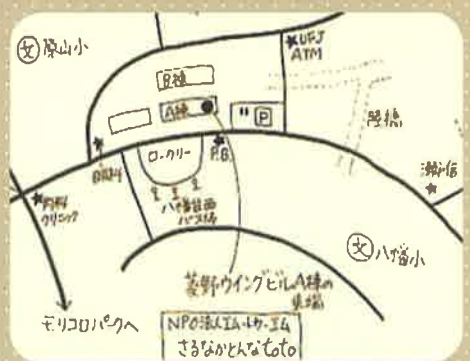 文 原山小
★UFJ
ATM
B棟
A棟
" P
陸橋
歯科
ロータリー
P.B.
瀬戸信
★
内科
クリニック
八幡台西
バス停
文 八幡小
菱野ウイングビルA棟の
東端
モリコロパークへ
NPO法人エム・トゥ・エム
さるなかとんなtoto